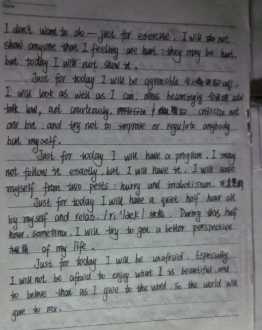 I don't want to do — just for exercise. I will do not
show anyone that I feeling are hurt. they may be hurt,
but today I will not show it.
Just for today I will be agreeable
I will look as well as I can, dress becomingly
talk low, act courteously, criticize not
one bit, and try not to improve or regulate anybody
but myself.
Just for today I will have a program. I may
not follow it exactly, but I will have it. I will save
myself from two pests: hurry and
Just for today I will have a quiet half hour all
by myself and relax. During this half
hour, sometime, I will try to get a better perspective
of my life.
Just for today I will be unafraid. Especially
I will not be afraid to enjoy what is beautiful and
to believe that as I give to the world, so the world will
give to me.